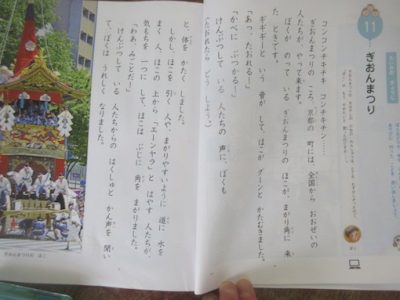 11
ぎおんまつり
コンコンチキチキ コンチキチン…
ぎおんまつりの ころ、京都の 町は、全国から おおぜいの
人たちが やって来ます。
ぼくが のって いる ぎおんまつりの ほこが、まがり角に 来
た ときです。
ギギギーと いう 音が して、ほこが グーンと かたむきました。
「あっ、たおれる！」
「かべに ぶつかる！」
けんぶつして いる 人たちの 声に、ぼくも
(たおれたら どう しよう。)
と、体を かたく しました。
しかし、ほこを 引く 人や、まがりやすいように 道に 水を
まく 人、ほこの 上から「エーンヤラ」と はやす 人たちが、
気もちを 一つに して、ほこは ぶじに 角を まがりました。
「わあ、みごとだ！」
けんぶつして いる 人たちからの はくしゅと かん声を 聞い
て、ぼくは うれしく なりました。